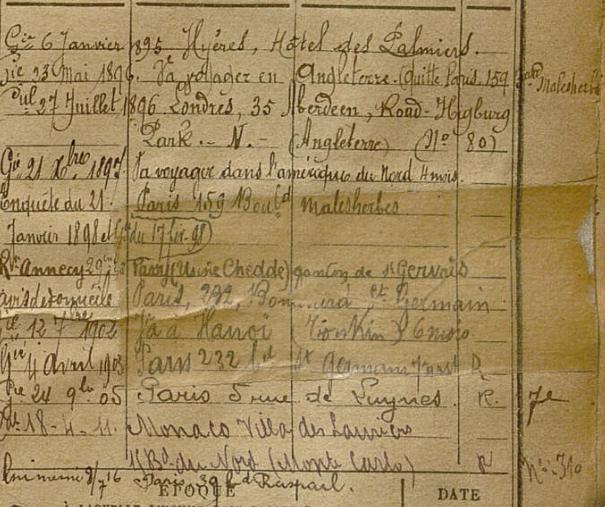 Gie 6 Janvier 1895 Hyères, Hôtel des Palmiers.
Gie 23 Mai 1896. Va voyager en Angleterre. (Quitte Paris 159 Malesherbes
27 Juillet 1896 Londres, 35 Aberdeen, Road-Higburg
Park. - N. - (Angleterre) (No 80)
Gie 21 Xbre 1897. Va voyager dans l'amérique du Nord 4 mois.
Enquête du 21. Paris 159 Boulcd Malesherbes
Janvier 1898 et du 17 fév. 98)
Annecy Passy (Usine Chedde) canton de St Gervais
avis de domicile Paris, 232, St Germain
12 7bre 1902 Va à Hanoï (Tonkin) 6 mois
Gie 4 avril 1903 Paris 232 Bd St Germain R.
Gie 24 9bre 05 Paris 5 rue de Luynes. R. 7e
18-4-11. Monaco Villa des Lauriers
1 Bd du Nord (Monte Carlo) R No 310
Lui même 9/7 16 Paris 39 Bd Raspail.
EPOQUE DATE